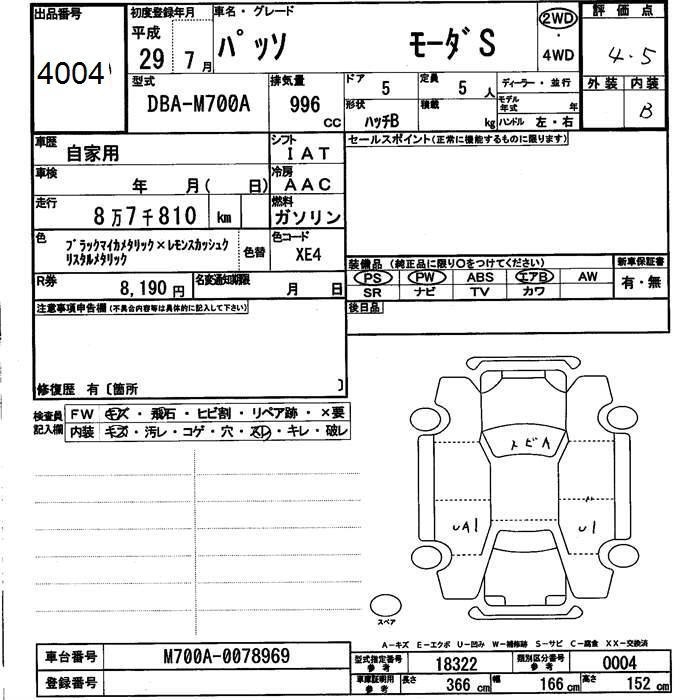 出品番号
4004
初度登録年月
平成
29 7月
車名・グレード
パッソ モーダS
2WD
・
4WD
評価点
4.5
外装 内装
B
型式
DBA-M700A
排気量
996
cc
ドア
5
定員
5 人
形状
ハッチB
積載
kg
ディーラー・並行
モデル
年式 年
ハンドル 左・右
車歴
自家用
シフト
IAT
車検
年 月( 日)
冷房
AAC
走行
8万7千810 km
燃料
ガソリン
色
ブラックマイカメタリック×レモンスカッシュク
リスタルメタリック
色替
色コード
XE4
R券
8,190 円
名変通知期限
月 日
セールスポイント(正常に機能するものに限ります)
装備品(純正品に限り○をつけてください)
PS PW ABS エアB AW
SR ナビ TV カワ
新車保証書
有・無
後日品
注意事項申告欄(不具合内容等は具体的に記入して下さい)
修復歴 有〔箇所 〕
検査員
記入欄
FW キズ・飛石・ヒビ割・リペア跡・×要
内装 キズ・汚レ・コゲ・穴・スレ・キレ・破レ
トビA
UA1
U1
スペア
A-キズ E-エクボ U-凹み W-補修跡 S-サビ C-腐食 XX-交換済
車台番号 M700A-0078969
登録番号
型式指定番号
参考
18322
類別区分番号
参考
0004
車庫証明用
参考
長さ 366 cm 幅 166 cm 高さ 152 cm